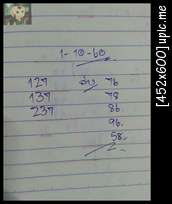 1-10-60
127 76
137 78
237 86
96
58
[452x600] upic.me